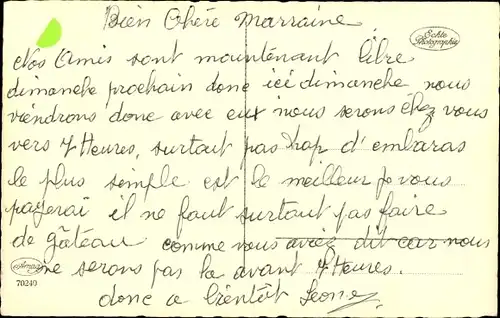 Bien Chère Marraine
Echte
Photographie
Nos Amis sont maintenant libre
dimanche prochain donc ici dimanche nous
viendrons donc avec eux nous serons chez vous
vers 7 Heures, surtout pas trop d'embaras
le plus simple est le meilleur je vous
payerai il ne faut surtout pas faire
de gâteau comme vous aviez dit car nous
ne serons pas la avant 7 Heures.
70249
donc a bientôt Leone